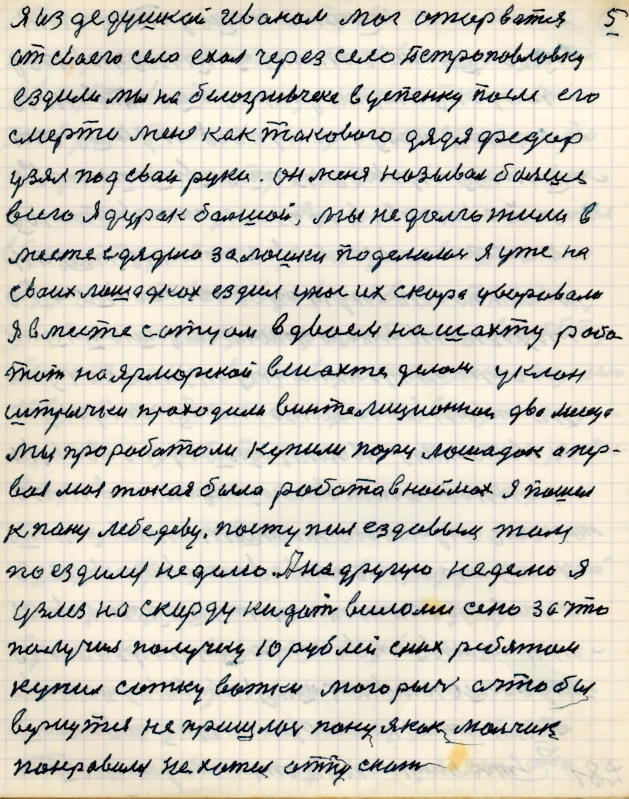 я из дедушкой Иваном мог оторватся 5
от своего села ехал через село Петроповловку
ездили мы на белогривчеке в успенку посли его
смерти меня как токового дядя федор
узял под сваи руки. он меня называл болше
всего я дурак балшой, мы не долго жили в
месте с дядяю за лошки поделилис я уже на
своих лошадках ездил у нас их скора уворовали
я вместе сотцом вдвоем на шахту рабо
тат на Ярморской вшахте делали уклон
штрычки проходили винтелиционной два месеца
мы проработоли купили пару лошадок а пер-
вая моя токая была робота внаймах я пошел
к пану лебедеву. поступил ездовым там
поездил неделю. А на другую неделю я
узлез на скирду кидат вилами сено за что
получил получку 10 рублей сних ребятам
купил сотку вотки могорыч а что бы
вернутся не пришлос пану я как молчик
понравился не хотел отпускат